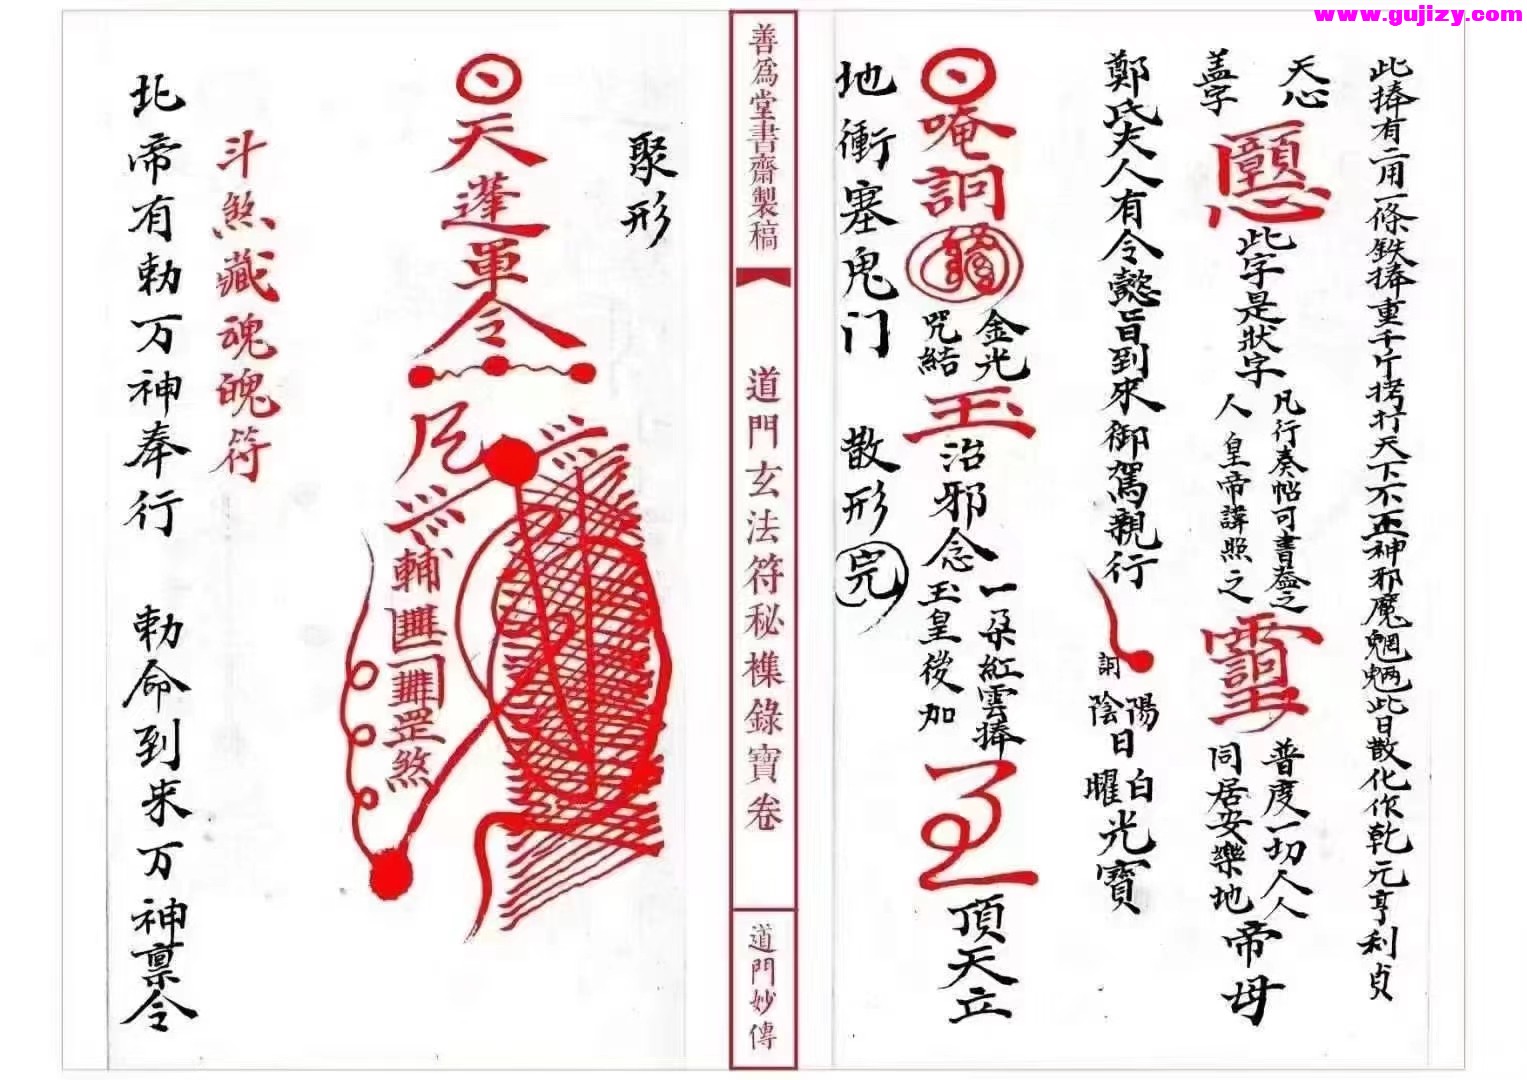 www.gujizy.com
此捧有二用一條鉄捧重千斤拷打天下不正神邪魔魍魎此日散化作乾元亨利貞
天心
盖字
此字是狀字
凡行奏帖可書盖之
人皇帝講照之
靈
普度一切人人
同居安樂地
帝母
鄭氏夫人有令懿旨到來御駕親行
詞
陽
陰
日
白
曜
光寶
唵詞
金光
咒結
玉
治邪念
一朵紅雲捧
玉皇後加
頂天立
地衝塞鬼门 散形完
善為堂書齋製稿
道門玄法符秘集錄寶卷
道門妙傳
聚形
天蓬軍令
輔
罡煞
斗煞藏魂魄符
北帝有勅万神奉行 勅命到來万神禀令